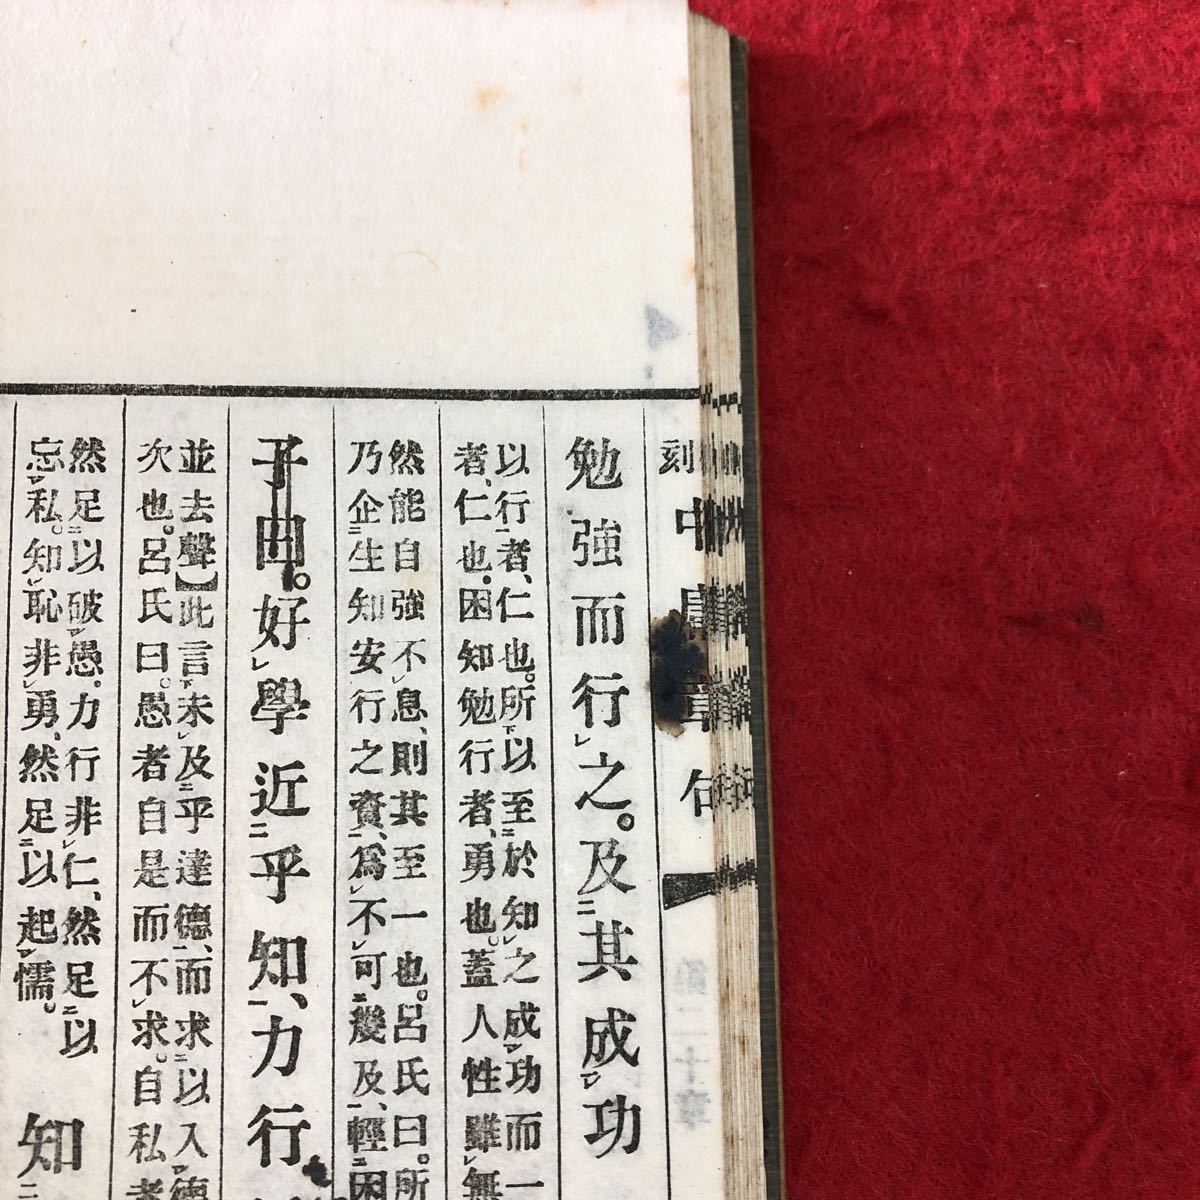 刻
中庸章句
第二十章
勉強而行㆑之。及㆓其成㆒㆑功
以行㆒者、仁也。所㆘以至㆓於知㆑之成㆑功而一
者、仁也。困知勉行者、勇也。蓋人性雖㆑無
然能自強不㆑息、則其至一也。呂氏曰。所
乃企㆓生知安行之資㆒、爲㆑不㆑可㆓幾及㆒、輕㆓困
子曰。好㆑學近㆓乎知㆒、力行
並去聲】此言㆘未㆑及㆓乎達德㆒、而求㆓以入㆑德
次也。呂氏曰。愚者自是而不㆑求。自私者
然足㆓以破㆒㆑愚。力行非㆑仁、然足㆓以
忘㆒㆑私。知㆑恥非㆑勇、然足㆓以起㆒㆑懦。
知㆓